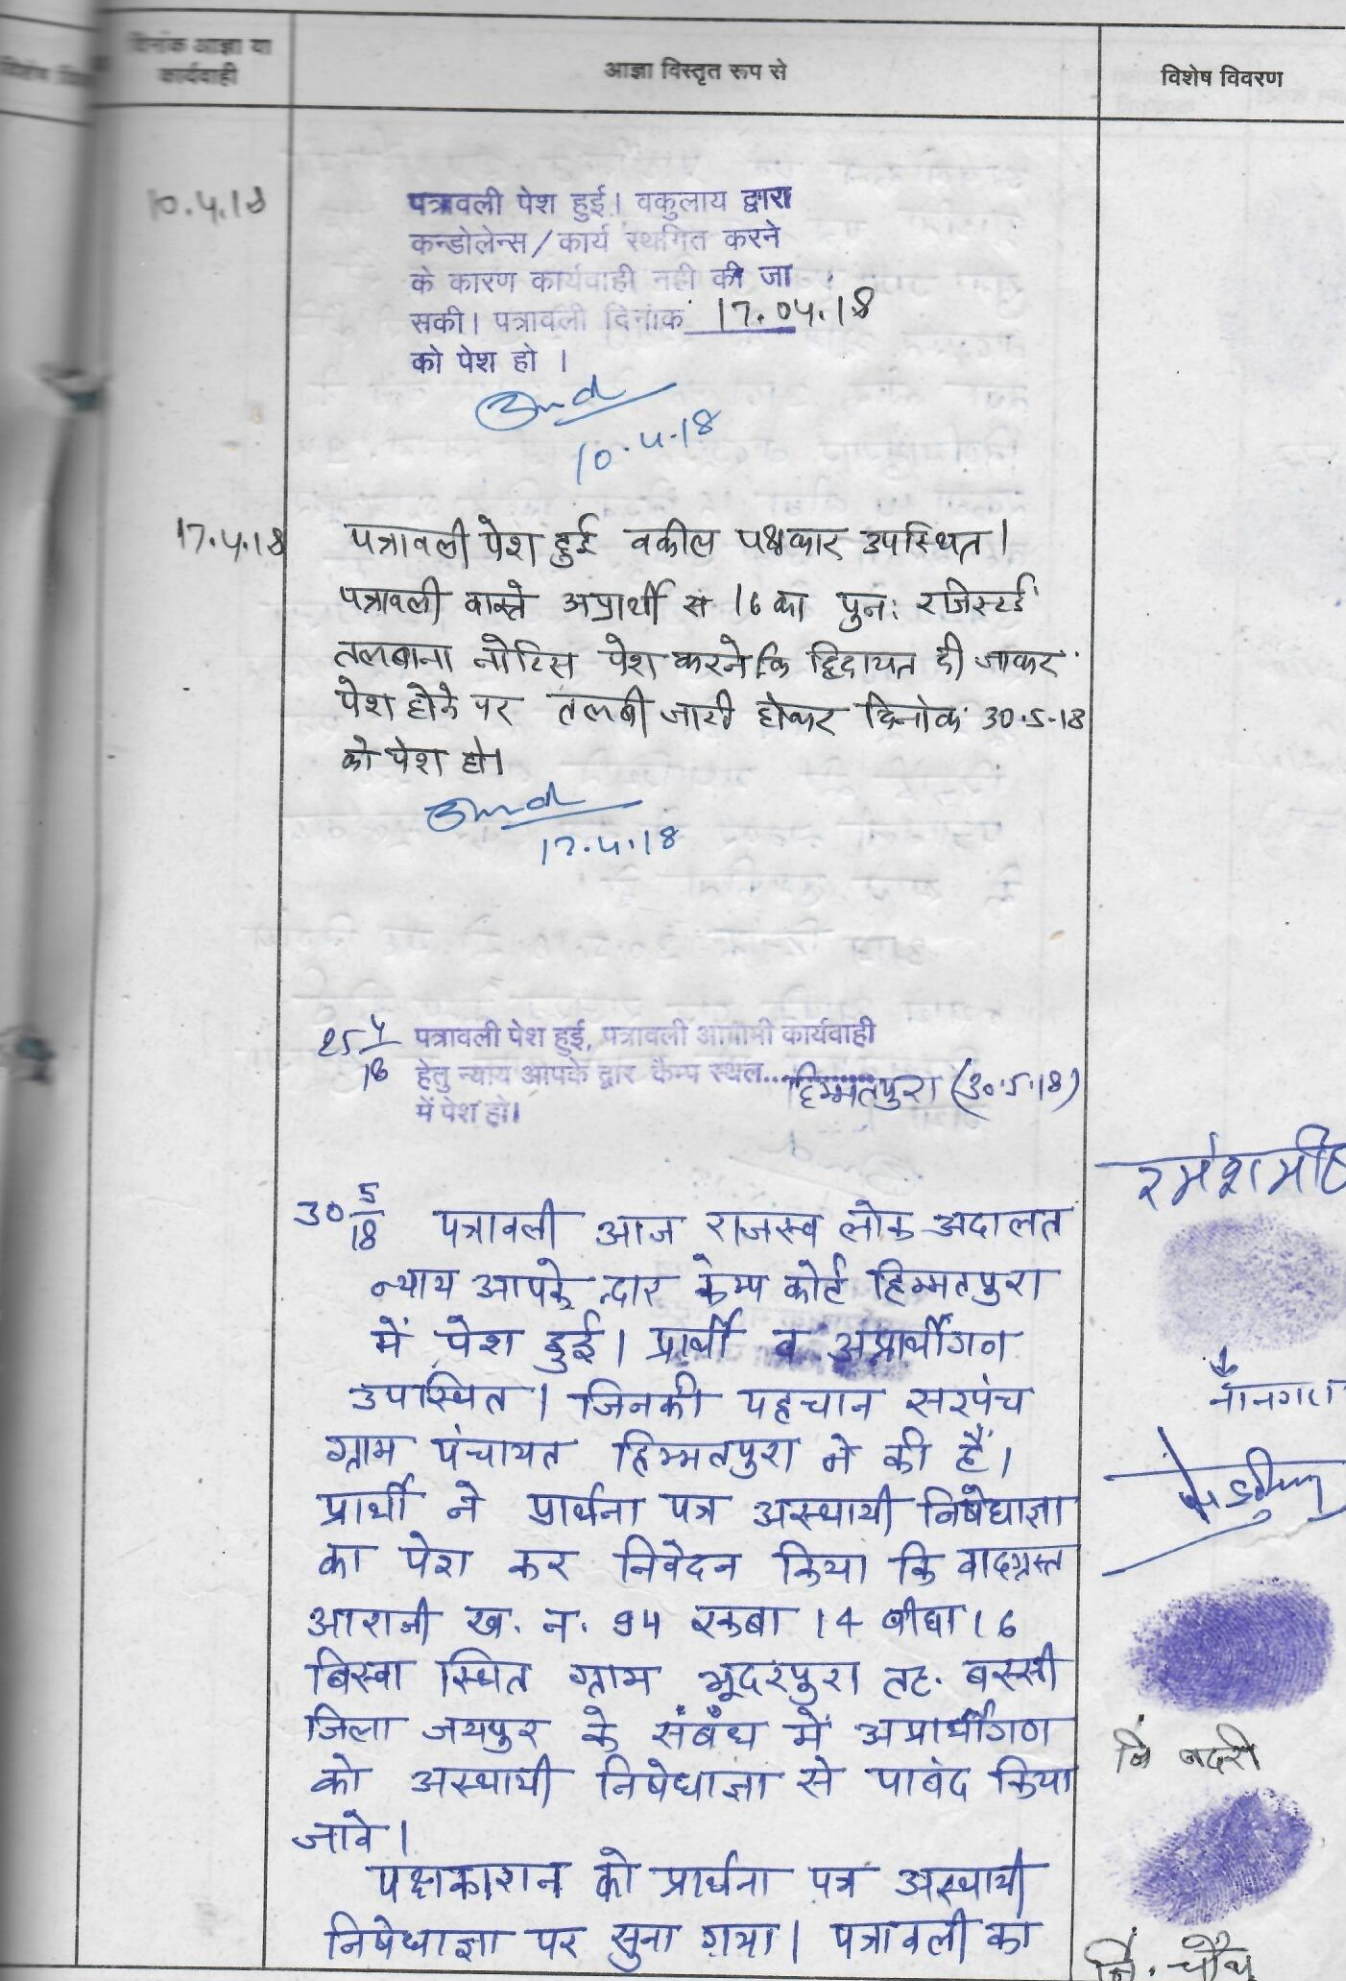 दिनांक आज्ञा या
कार्यवाही
आज्ञा विस्तृत रूप से
विशेष विवरण
10.4.18
पत्रावली पेश हुई। वकुलाय द्वारा
कन्डोलेन्स/कार्य स्थगित करने
के कारण कार्यवाही नही की जा
सकी। पत्रावली दिनांक 17.04.18
को पेश हो ।
10.4.18
17.4.18
पत्रावली पेश हुई वकील पक्षकार उपस्थित।
पत्रावली वास्ते अप्रार्थी सं 16 का पुन: रजिस्टर्ड
तलबाना नोटिस पेश करने कि हिदायत दी जाकर
पेश होने पर तलबी जारी होकर दिनांक 30.5.18
को पेश हो।
17.4.18
25 4/18 पत्रावली पेश हुई, पत्रावली आगामी कार्यवाही
हेतु न्याय आपके द्वार कैम्प स्थल.............हिम्मतपुरा (30.5.18)
में पेश हो।
30 5/18 पत्रावली आज राजस्व लोक अदालत
न्याय आपके द्वार केम्प कोर्ट हिम्मतपुरा
में पेश हुई। प्रार्थी व अप्रार्थीगण
उपस्थित। जिनकी पहचान सरपंच
ग्राम पंचायत हिम्मतपुरा ने की है।
प्रार्थी ने प्रार्थना पत्र अस्थायी निषेधाज्ञा
का पेश कर निवेदन किया कि वादग्रस्त
आराजी ख. न. 94 रकबा 14 बीघा 16
बिस्वा स्थित ग्राम भूदरपुरा तह. बस्सी
जिला जयपुर के संबंध में अप्रार्थीगण
को अस्थायी निषेधाज्ञा से पाबंद किया
जावे।
पक्षकारान को प्रार्थना पत्र अस्थायी
निषेधाज्ञा पर सुना गया। पत्रावली का
रमेश मी
नानगरा
नि बदरी
नि. चौथ